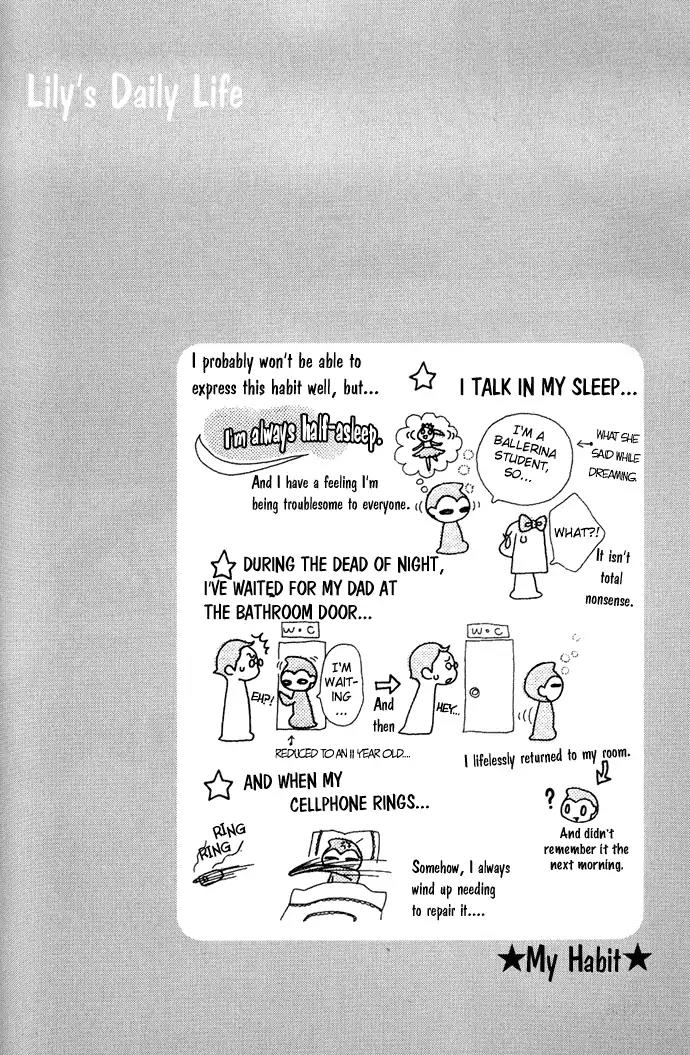 Lily's Daily Life
I probably won't be able to
express this habit well, but...
I'm always half-asleep.
And I have a feeling I'm
being troublesome to everyone.
☆ I TALK IN MY SLEEP...
I'M A
BALLERINA
STUDENT,
SO...
← WHAT SHE
SAID WHILE
DREAMING.
WHAT?!
It isn't
total
nonsense.
☆ DURING THE DEAD OF NIGHT,
I'VE WAITED FOR MY DAD AT
THE BATHROOM DOOR...
W·C
EHP!
I'M
WAIT-
ING
...
↑
REDUCED TO AN 11 YEAR OLD...
⇨
And
then
W·C
HEY...
I lifelessly returned to my room.
?
And didn't
remember it the
next morning.
☆ AND WHEN MY
CELLPHONE RINGS...
RING
RING
Somehow, I always
wind up needing
to repair it....
★My Habit★